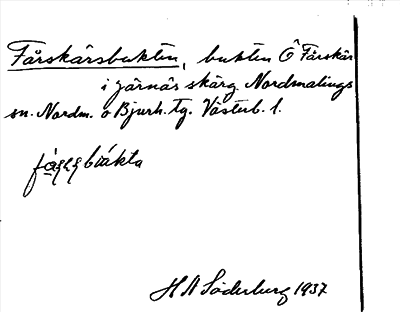 Fårskärsbukten, bukten Ö Fårskär
i Järnäs skärg. Nordmalings
sn. Nordm. o Bjurh. tg. Västerb. l.
H A Söderburg 1937